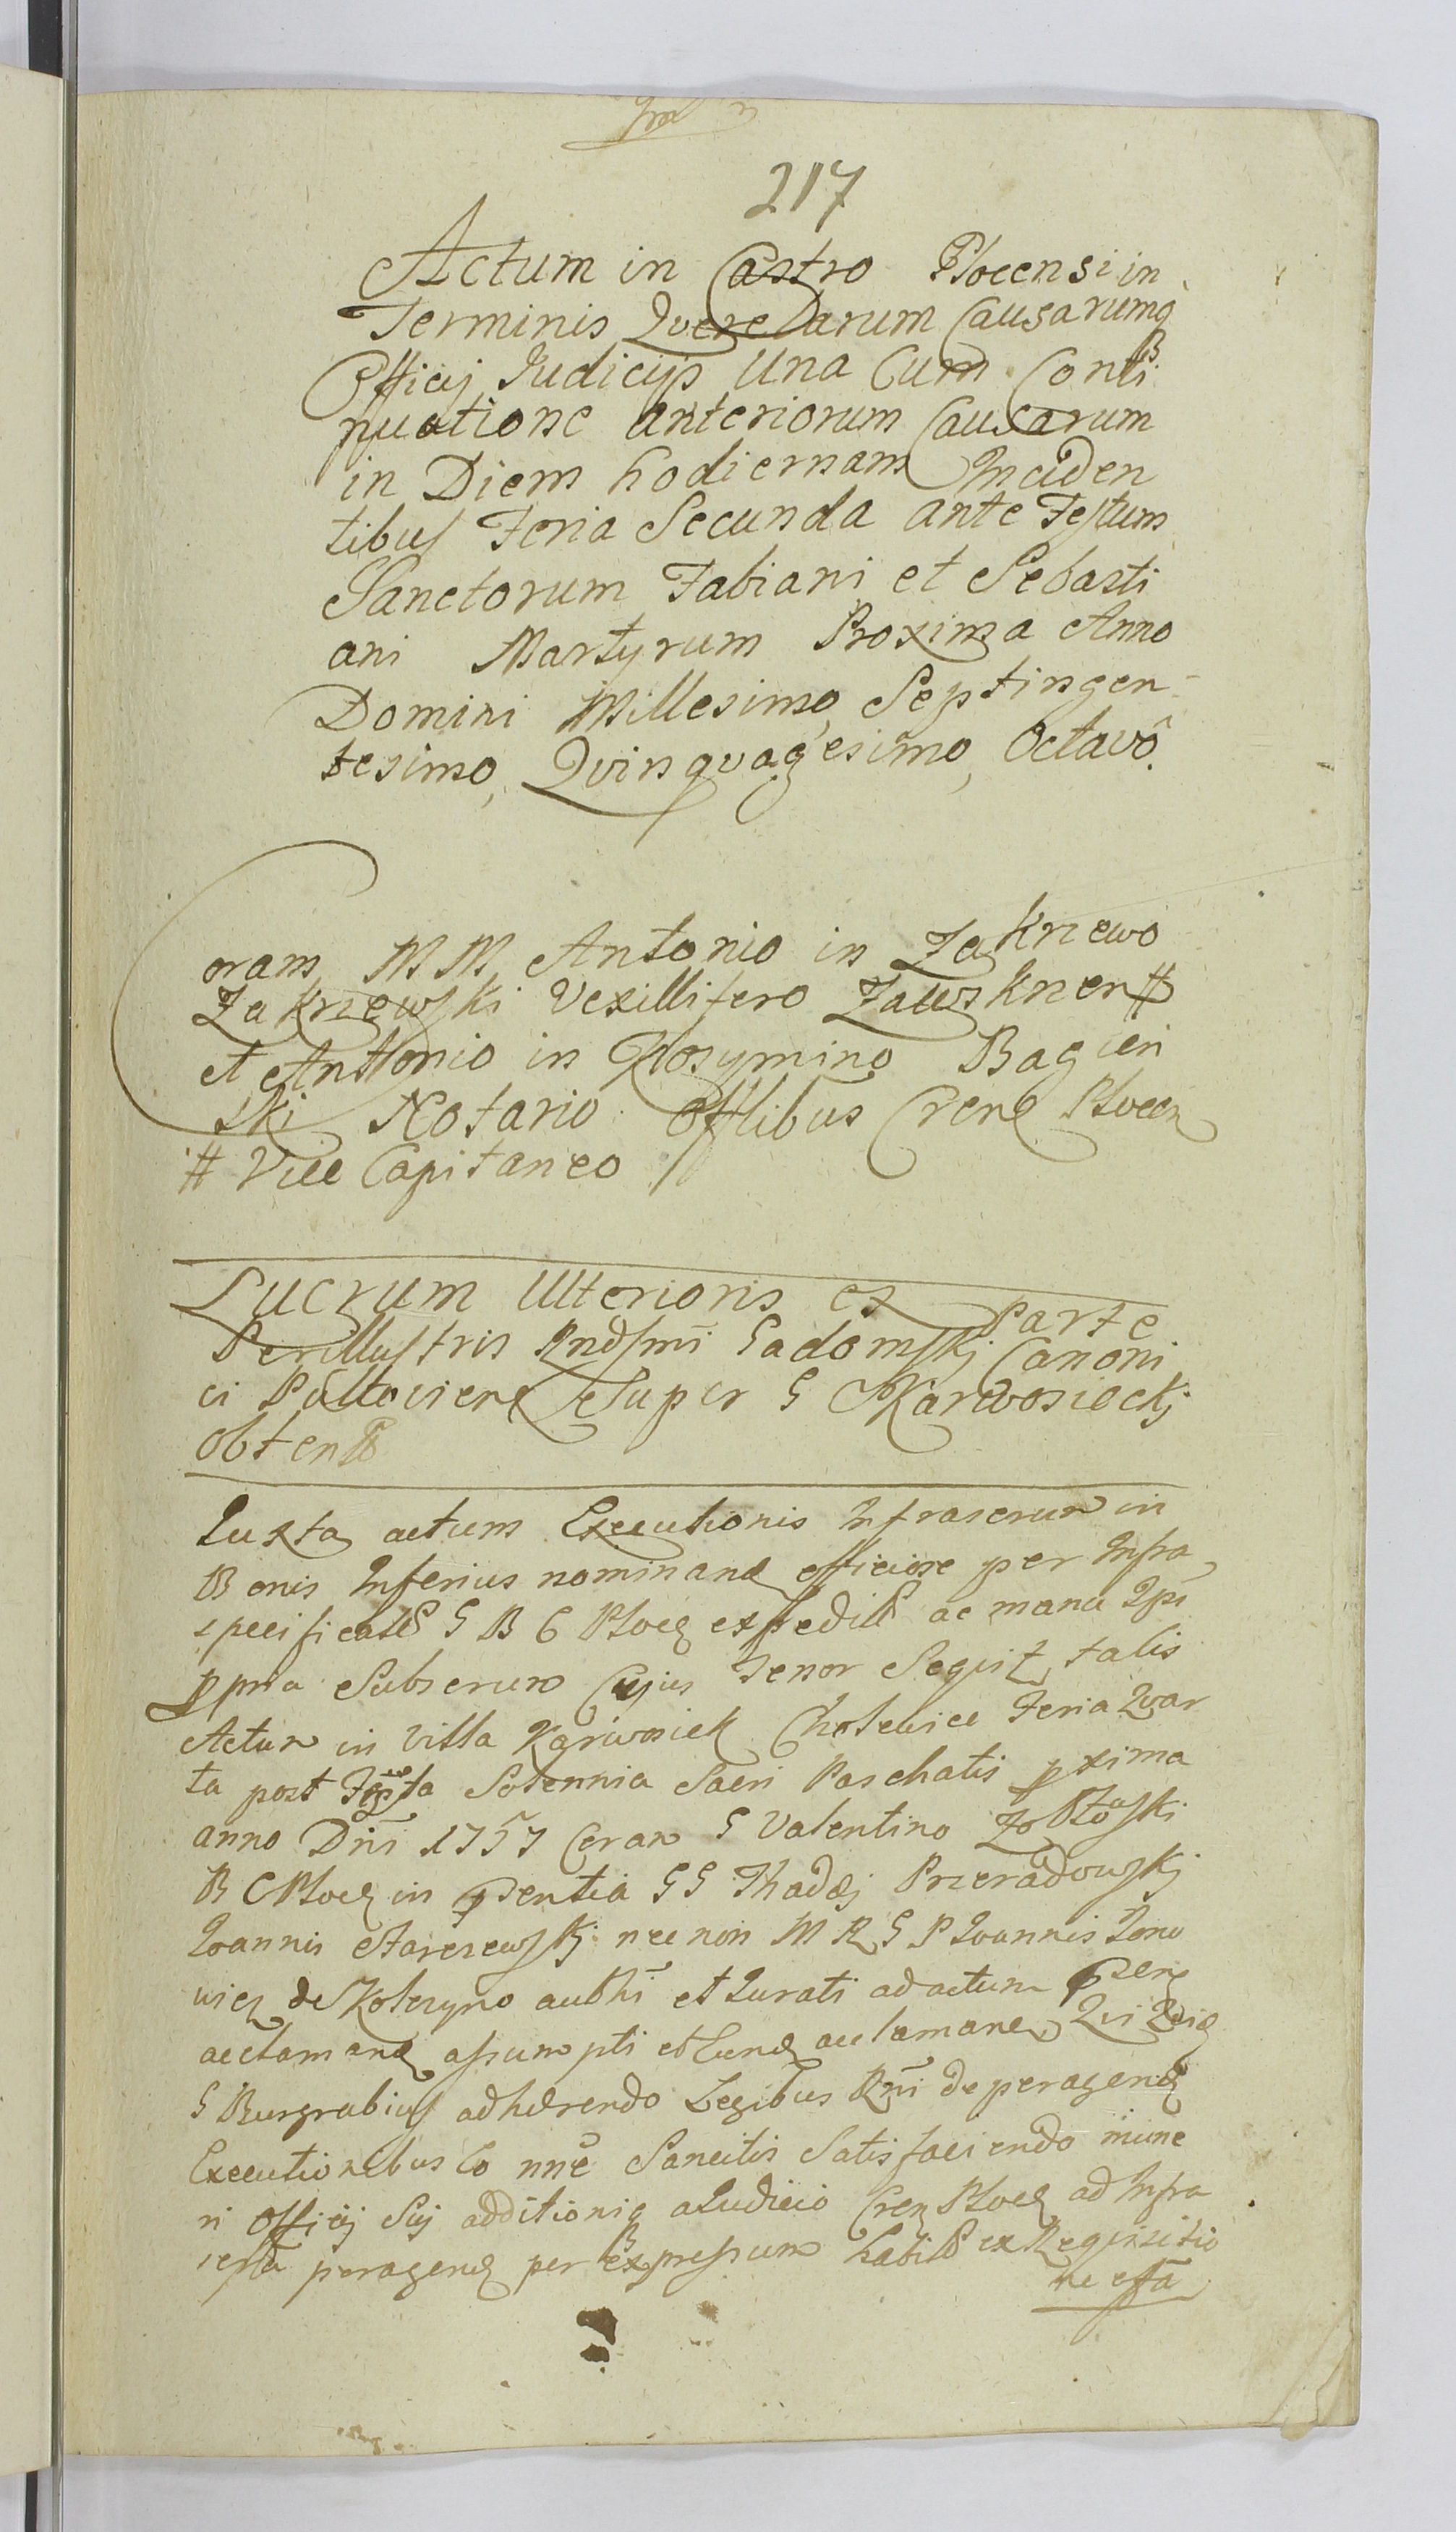 217
Actum in Castro Plocensi in
Terminis Qverelarum Causarumq
Officij Judicijs Una Cum Conti
nuatione anteriorum Causarum
in Diem hodiernam Inciden
tibus Feria Secunda ante Festum
Sanctorum Fabiani et Sebasti
ani Martyrum Proxima Anno
Domini Millesimo Septingen
tesimo, Qvinqvagesimo, Octavô.
Coram MM Antonio in Zakrzewo
Zakrzewski Vexillifero Zawskrzen #
et Anttonio in Bagien
ski Notario Offlibus Cren Plocen
# Vice Capitaneo
Lucrum Ulterioris ex parte
Perillustris Rndsmi Gadomskj Canoni
ci Pultovien Super G Karwosieckj
obten
Iuxta actum Executionis Infrascrum in
Bonis Inferius nominand officiose per Infra
specificat G B C Ploc expedit ac manu Ipsi
ppria Subscrum Cujus Tenor Seqvit talis
Actum in Villa Karwosiek Cholewice Feria Qvar
ta post Festa Solennia Sacri Paschatis pxima
anno Dni 1757 Coram G Valentino
B C Ploc in psentia GG Thadæj Przeradowskj
Ioannis nec non M R G P Ioannis Iono
wicz de aubhi et Iurati ad actum psen
acclamand assumpti et Tunc acclamane Qvi
G Burgrabius adhærendo Legibus Rgni de peragend
Executionibus Eo nne Sancitis Satisfaciendo mune
ri Officij Suj additioniq a Iudicio Cren Ploc ad Infra
scpta peragend per expressum habit ex Reqvisitio
ne